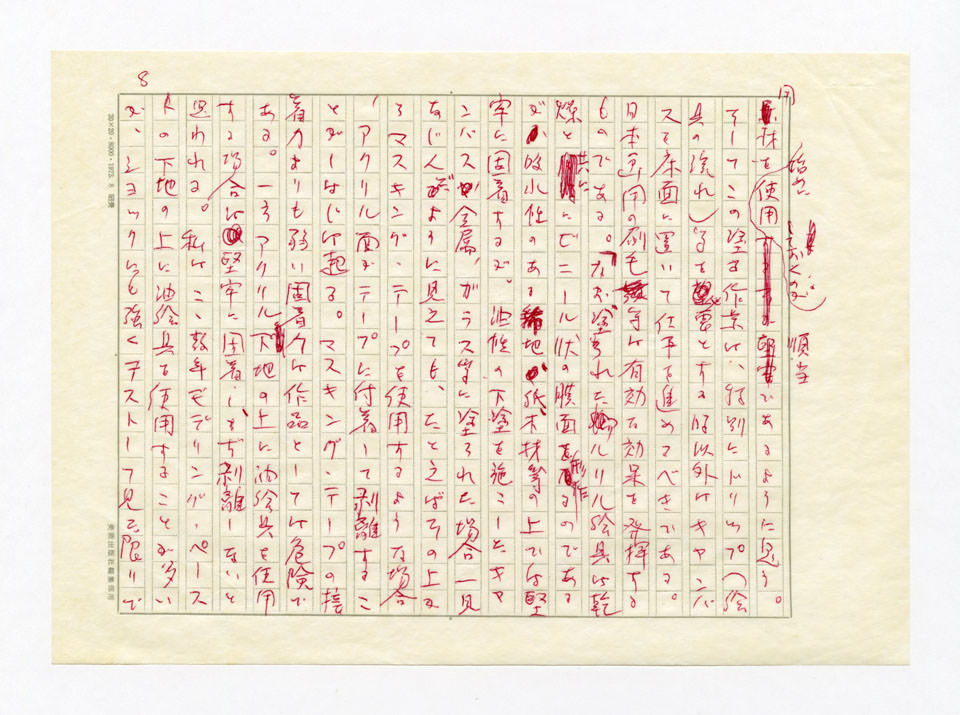 8
用材を始めに使用しておくのが順当であるように思う。
そしてこの塗る作業は、特別にドリップ（絵
具の流れ）等を必要とする時以外はキャンバ
スを床面に置いて仕事を進めてべきである。
日本画用の刷毛等は有効な効果を発揮する
ものである。なお塗られたアクリル絵具は乾
燥と共にビニール状の膜面を形作るのである
が吸水性のある地が紙、木材等の上では堅
牢に固着するが、油性の下塗を施こしたキャ
ンバスや金属、ガラス等に塗られた場合一見
おなじように見えても、たとえばその上か
らマスキング・テープを使用するような場合
、アクリル面がテープに付着して剥離するこ
とがしばしば起る。マスキング・テープの接
着力よりも弱い固着力は作品としては危険で
ある。一方アクリル下地の上に油絵具を使用
する場合は堅牢に固着し、まず剥離しないと
思われる。私はこゝ数年モデリング・ペース
トの下地の上に油絵具を使用することが多い
が、ショックにも強くテストして見た限りで
20×20・8000・1973. 8
美術出版社編集部用